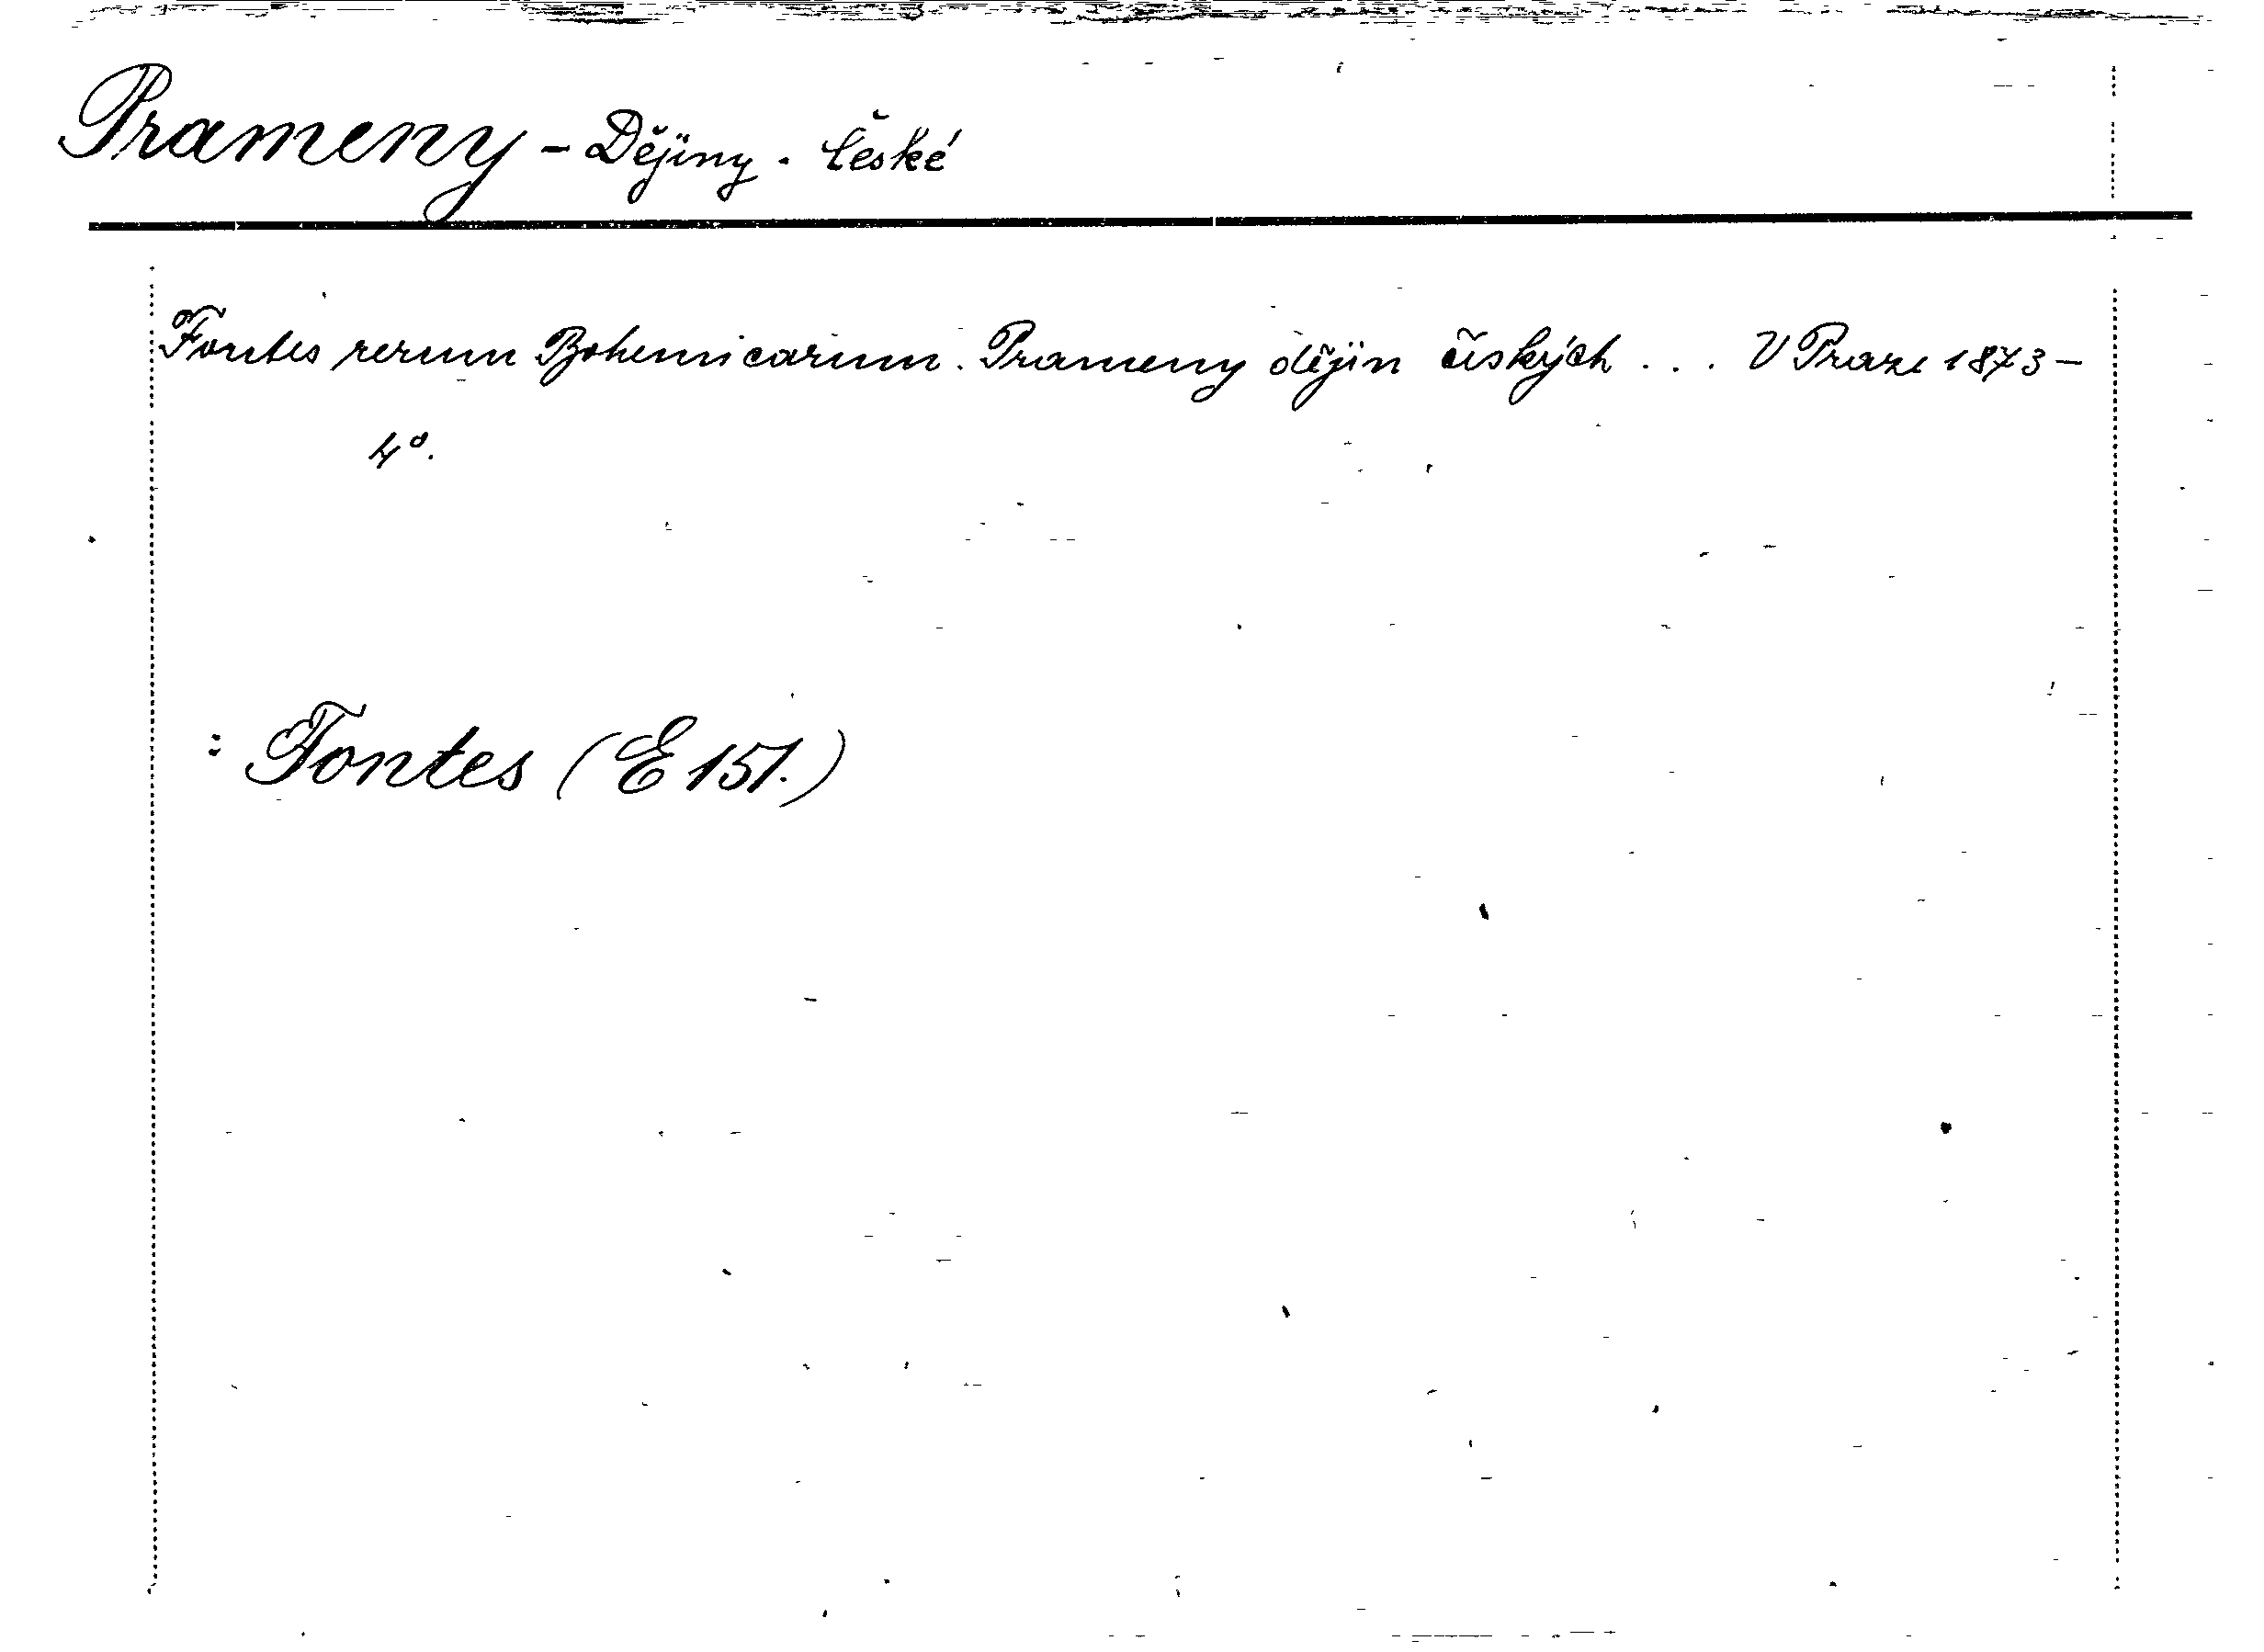 Prameny - Dějiny. České
Fontes rerum Bohemicarum. Prameny dějin českých ... V Praze 1873 -
4°.
: Fontes (E 151.)